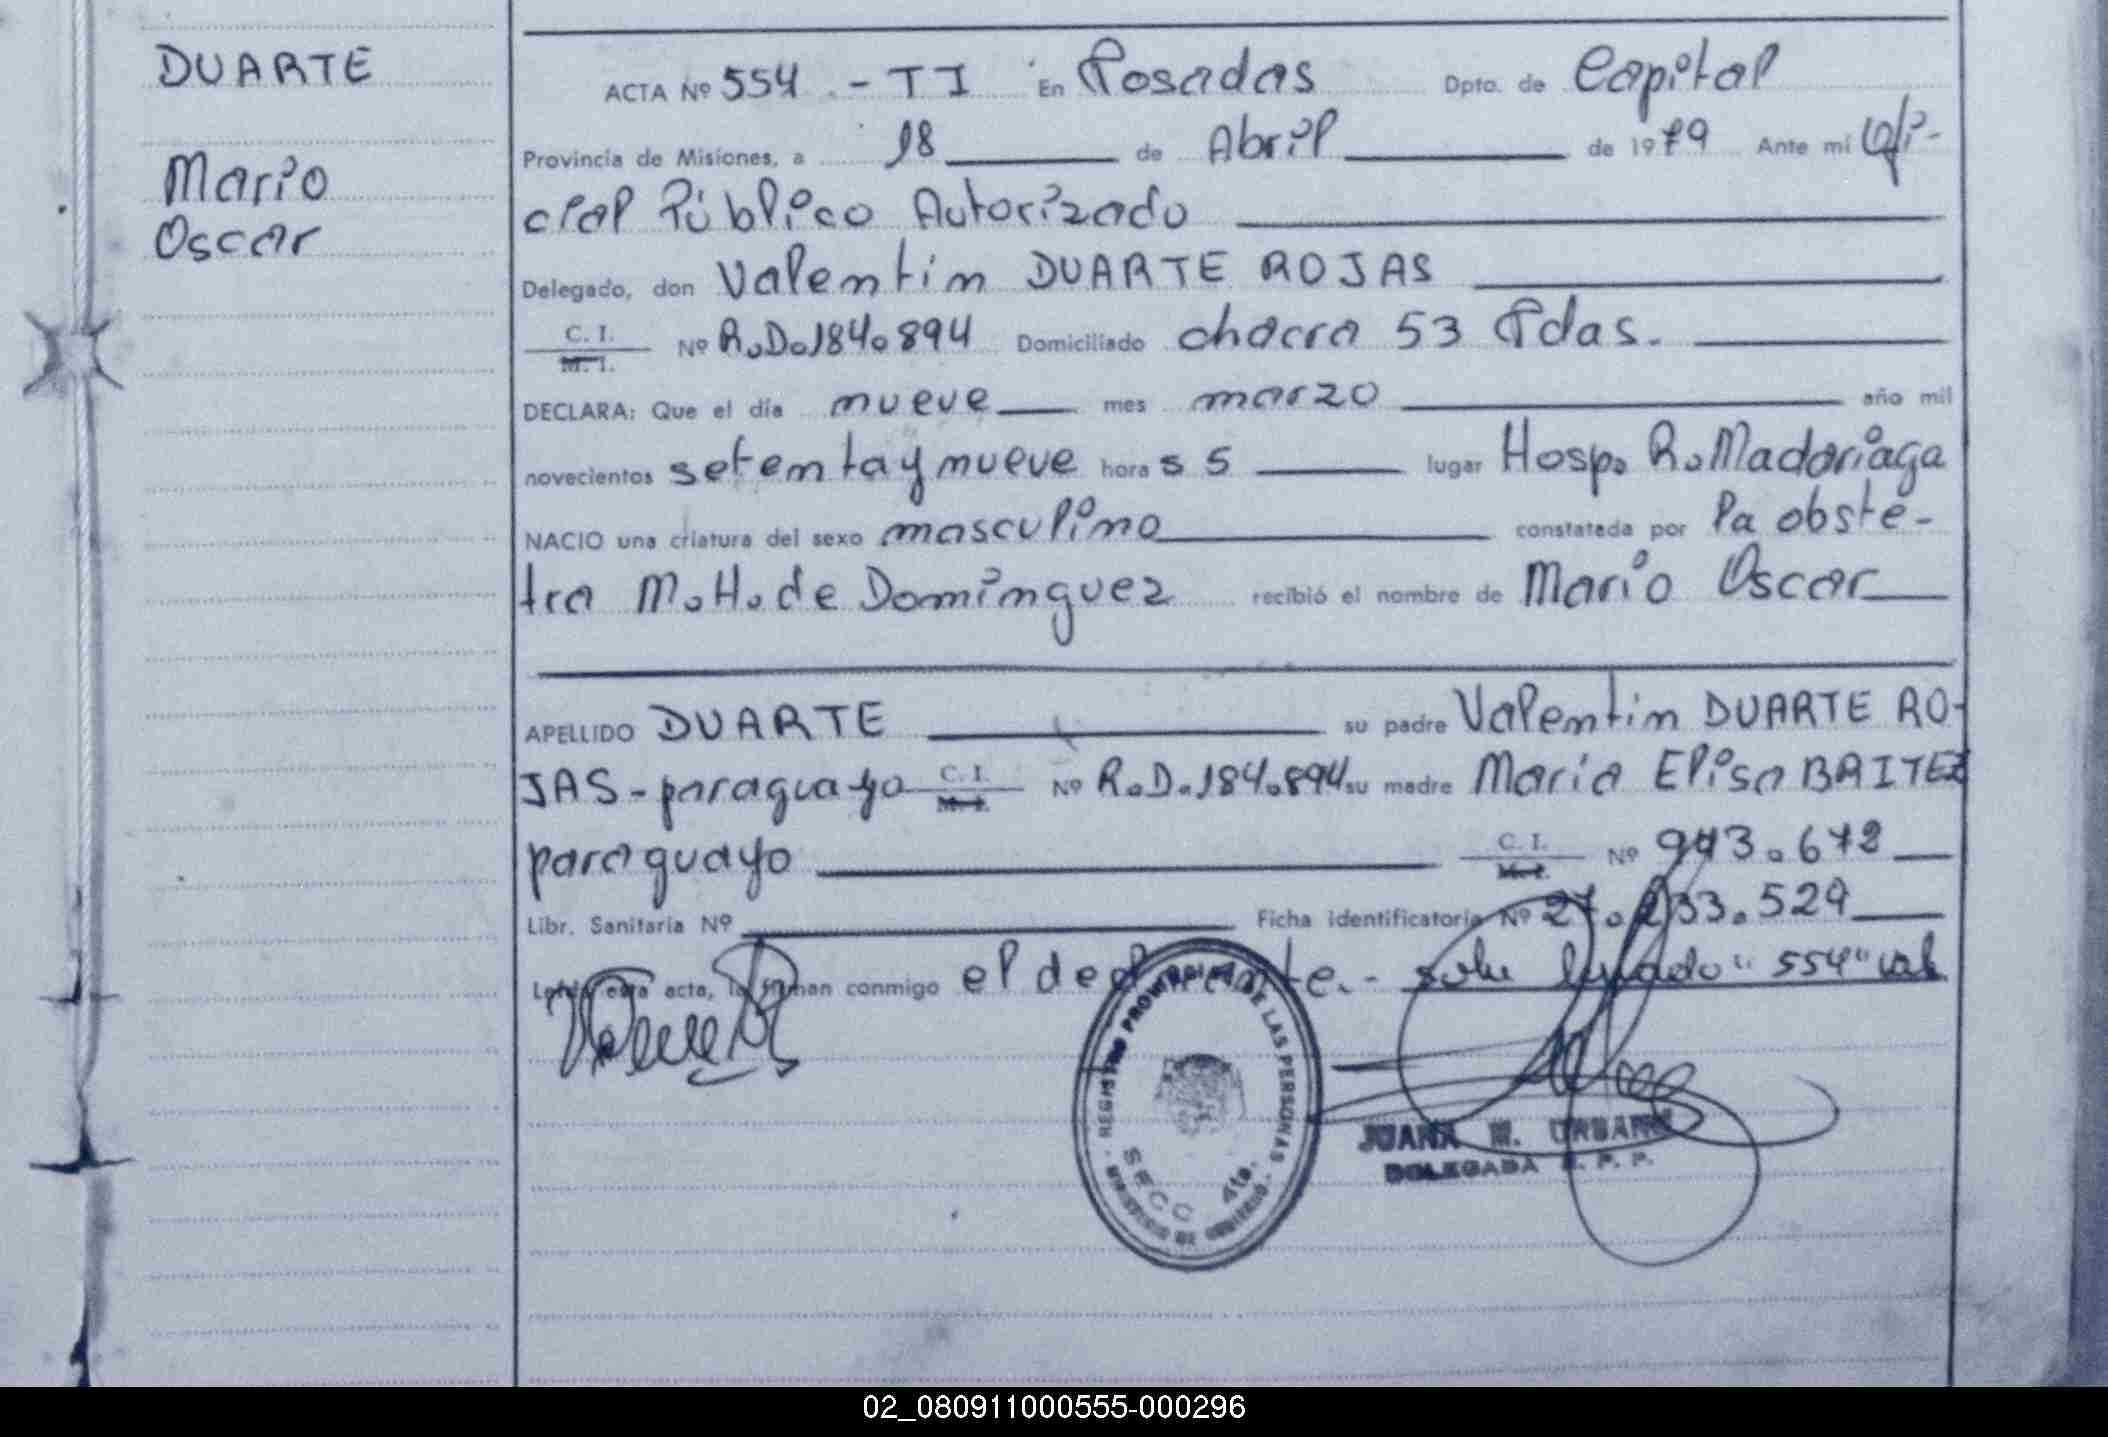 DUARTE
Mario
Oscar
ACTA Nº 554 - TI En Posadas Dpto. de Capital
Provincia de Misiones, a 18 de Abril de 1979 Ante mi Ofi-
cial Público Autorizado
Delegado, don Valentin DUARTE ROJAS
C. I.
M. I.
Nº R.D.184.894 Domiciliado chacra 53 Pdas.
DECLARA: Que el día nueve mes marzo año mil
novecientos setenta y nueve hora s 5 lugar Hosp. R. Madariaga
NACIO una criatura del sexo masculino constatada por la obste-
tra M.H. de Dominguez recibió el nombre de Mario Oscar
APELLIDO DUARTE su padre Valentin DUARTE RO-
JAS - paraguayo C. I. M. I. Nº R.D.184.894 su madre Maria Elisa BAITEZ
paraguayo C. I. M. I. Nº 943.672
Libr. Sanitaria Nº Ficha identificatoria Nº 27.233.529
Leída esta acta, la firman conmigo el declarante.- sobre "554" vale
REGISTRO PROVINCIAL DE LAS PERSONAS
SECC 4ta.
MINISTERIO DE GOBIERNO
JUANA M. URBANO
DELEGADA R. P. P.
02_080911000555-000296